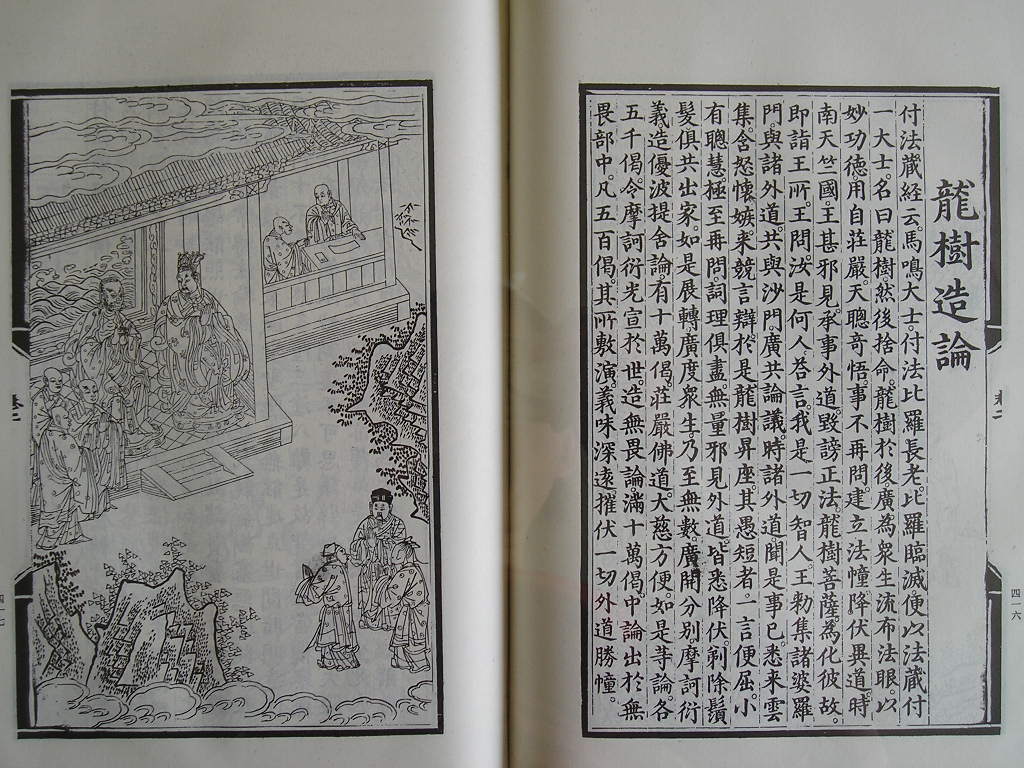 龍樹造論
付法藏経云。馬鳴大士。付法比羅長老。比羅臨滅。便以法藏付
一大士。名曰龍樹。然後捨命。龍樹於後。廣為衆生。流布法眼。以
妙功德。用自莊嚴。天聰竒悟。事不再問。建立法幢。降伏異道。時
南天竺國。王甚邪見。承事外道。毀謗正法。龍樹菩薩。為化彼故。
即詣王所。王問汝是何人。荅言。我是一切智人。王勑集諸婆羅
門。與諸外道。共與沙門。廣共論議。時諸外道。聞是事已。悉来雲
集。含怒懷嫉。来競言辯。於是龍樹昇座。其愚短者。一言便屈。小
有聰慧。極至再問。詞理俱盡。無量邪見外道。皆悉降伏。剃除鬚
髮。俱共出家。如是展轉。廣度衆生。乃至無數。廣開分別摩訶衍
義。造優波提舍論。有十萬偈。莊嚴佛道。大慈方便。如是等論。各
五千偈。令摩訶衍。光宣於世。造無畏論。滿十萬偈。中論出於無
畏部中。凡五百偈。其所敷演。義味深遠。摧伏一切外道勝幢。
卷二
四一六
四一七